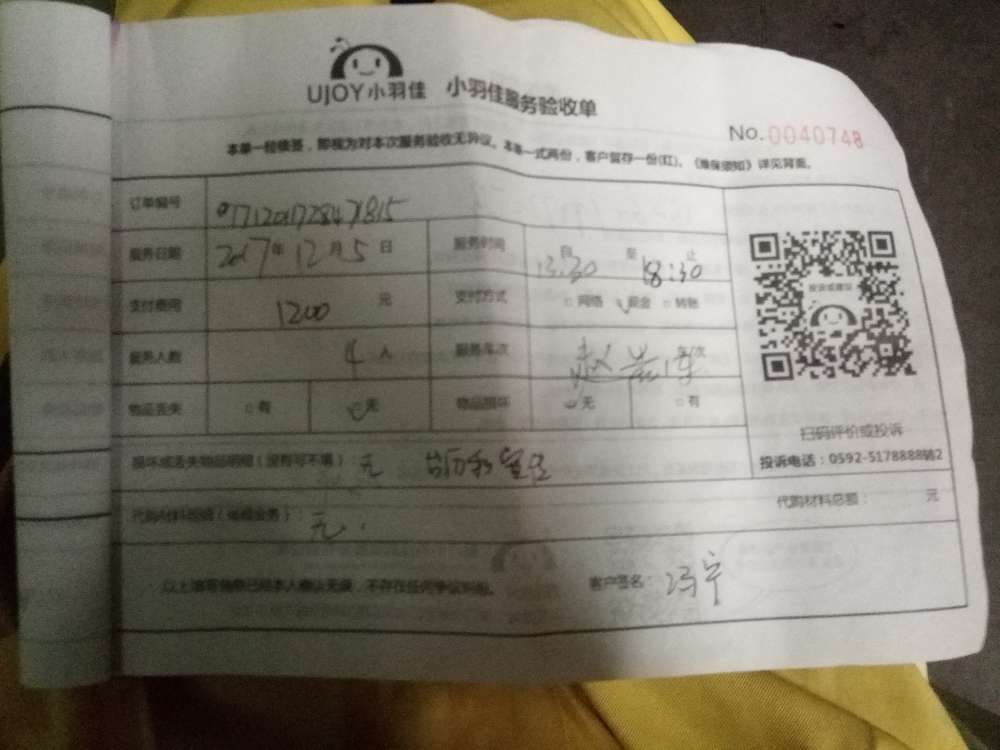 UJOY小羽佳 小羽佳服务验收单
No.0040748
本单一经签, 即视为对本次服务验收无异议。本单一式两份, 客户留存一份(红)。《须知》详见背面。
订单编号
服务日期 2017年12月5日 服务时间 自13:30 至18:30止
支付费用 1200 元 支付方式 □网络 现金 □转账
服务人数 4人 服务车次 车/次
物品丢失 □有 无 物品损坏 无 □有
投诉或建议
扫码评价或投诉
投诉电话:0592-5178888转2
损坏或丢失物品明细(没有可不填): 无
代购材料明细(业务): 无
代购材料总额: 元
以上请客已经本人确认无误, 不存在任何争议纠纷。 客户签名: 冯宁